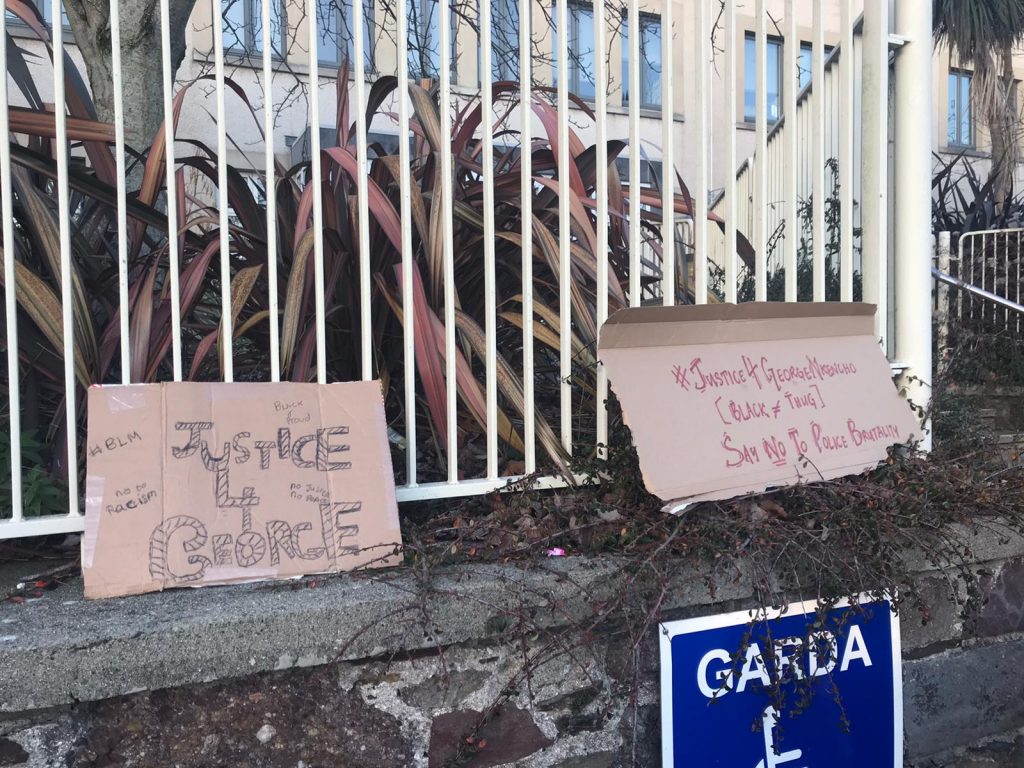 #BLM
Black
&
Proud
JUSTICE
4
GEORGE
no to
Racism
no Justice
no Peace
#JUSTICE4GEORGENKENCHO
[BLACK ≠ THUG]
SAY NO TO POLICE BRUTALITY
GARDA